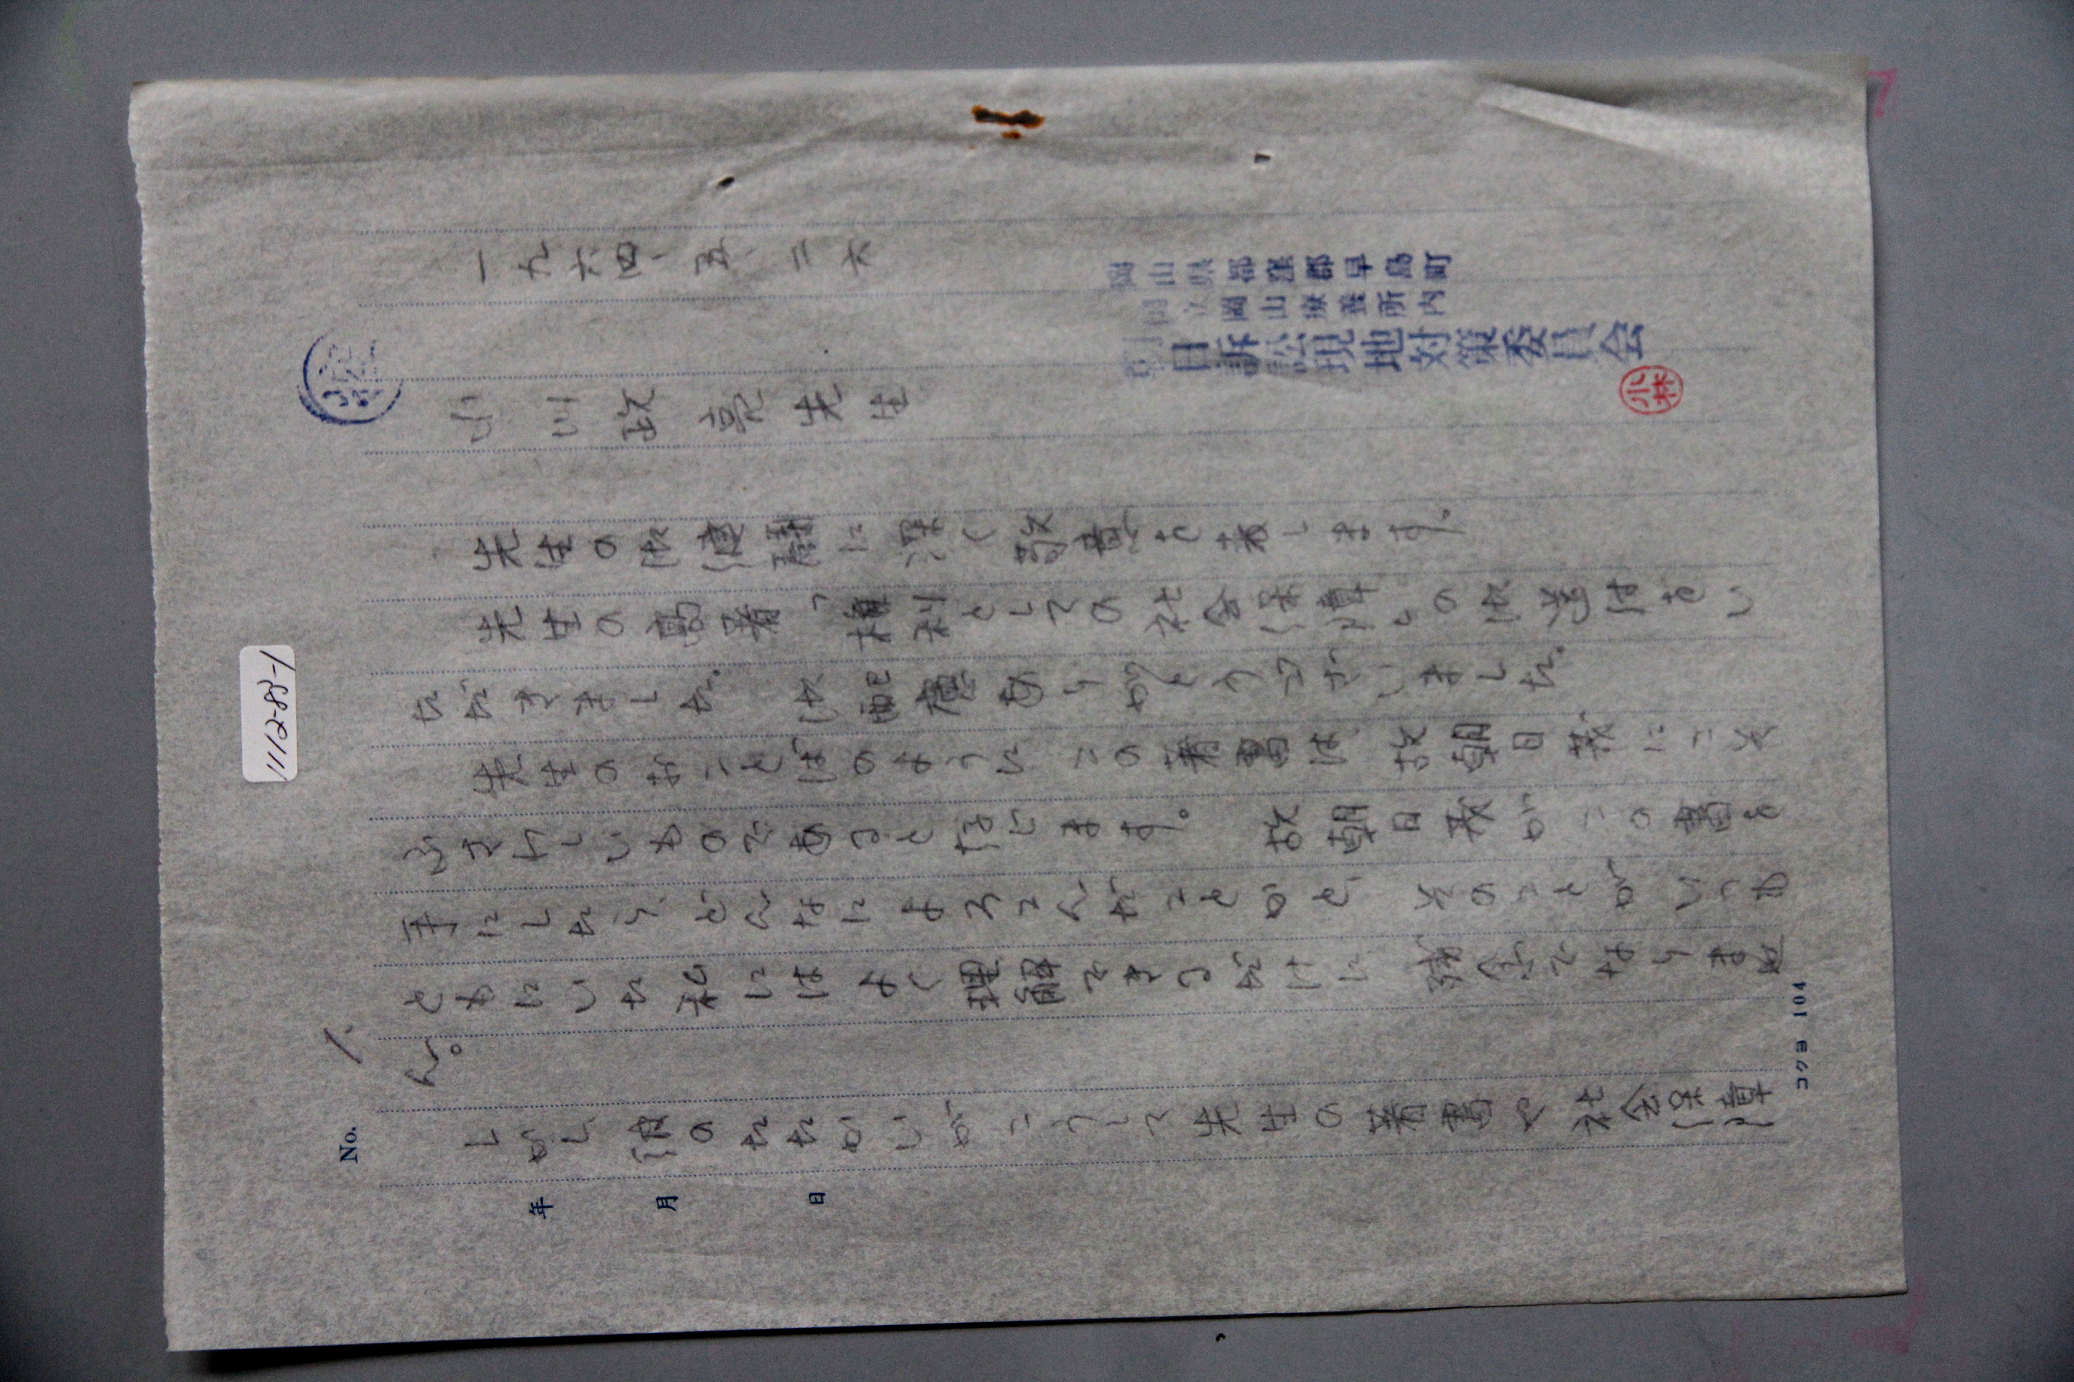 1112-83-1
No. 1.
年 月 日
一九六四、五、二六
岡山県都窪郡早島町
国立岡山療養所内
朝日訴訟現地対策委員会
小林
小川政亮先生
先生の御健闘に深く敬意を表します。
先生の高著「権利としての社会保障」の御送付をい
ただきました。御配慮ありがとうございました。
先生のおことばのように この著書は、故朝日茂にこそ
ふさわしいものであると信じます。 故朝日茂がこの書を
手にしたら、どんなによろこんだことかと、そのことがいつも
ともにいた私にはよく理解できるだけに 残念でなりませ
ん。
しかし彼のたたかいが こうして先生の著書や社会保障
コクヨ 104